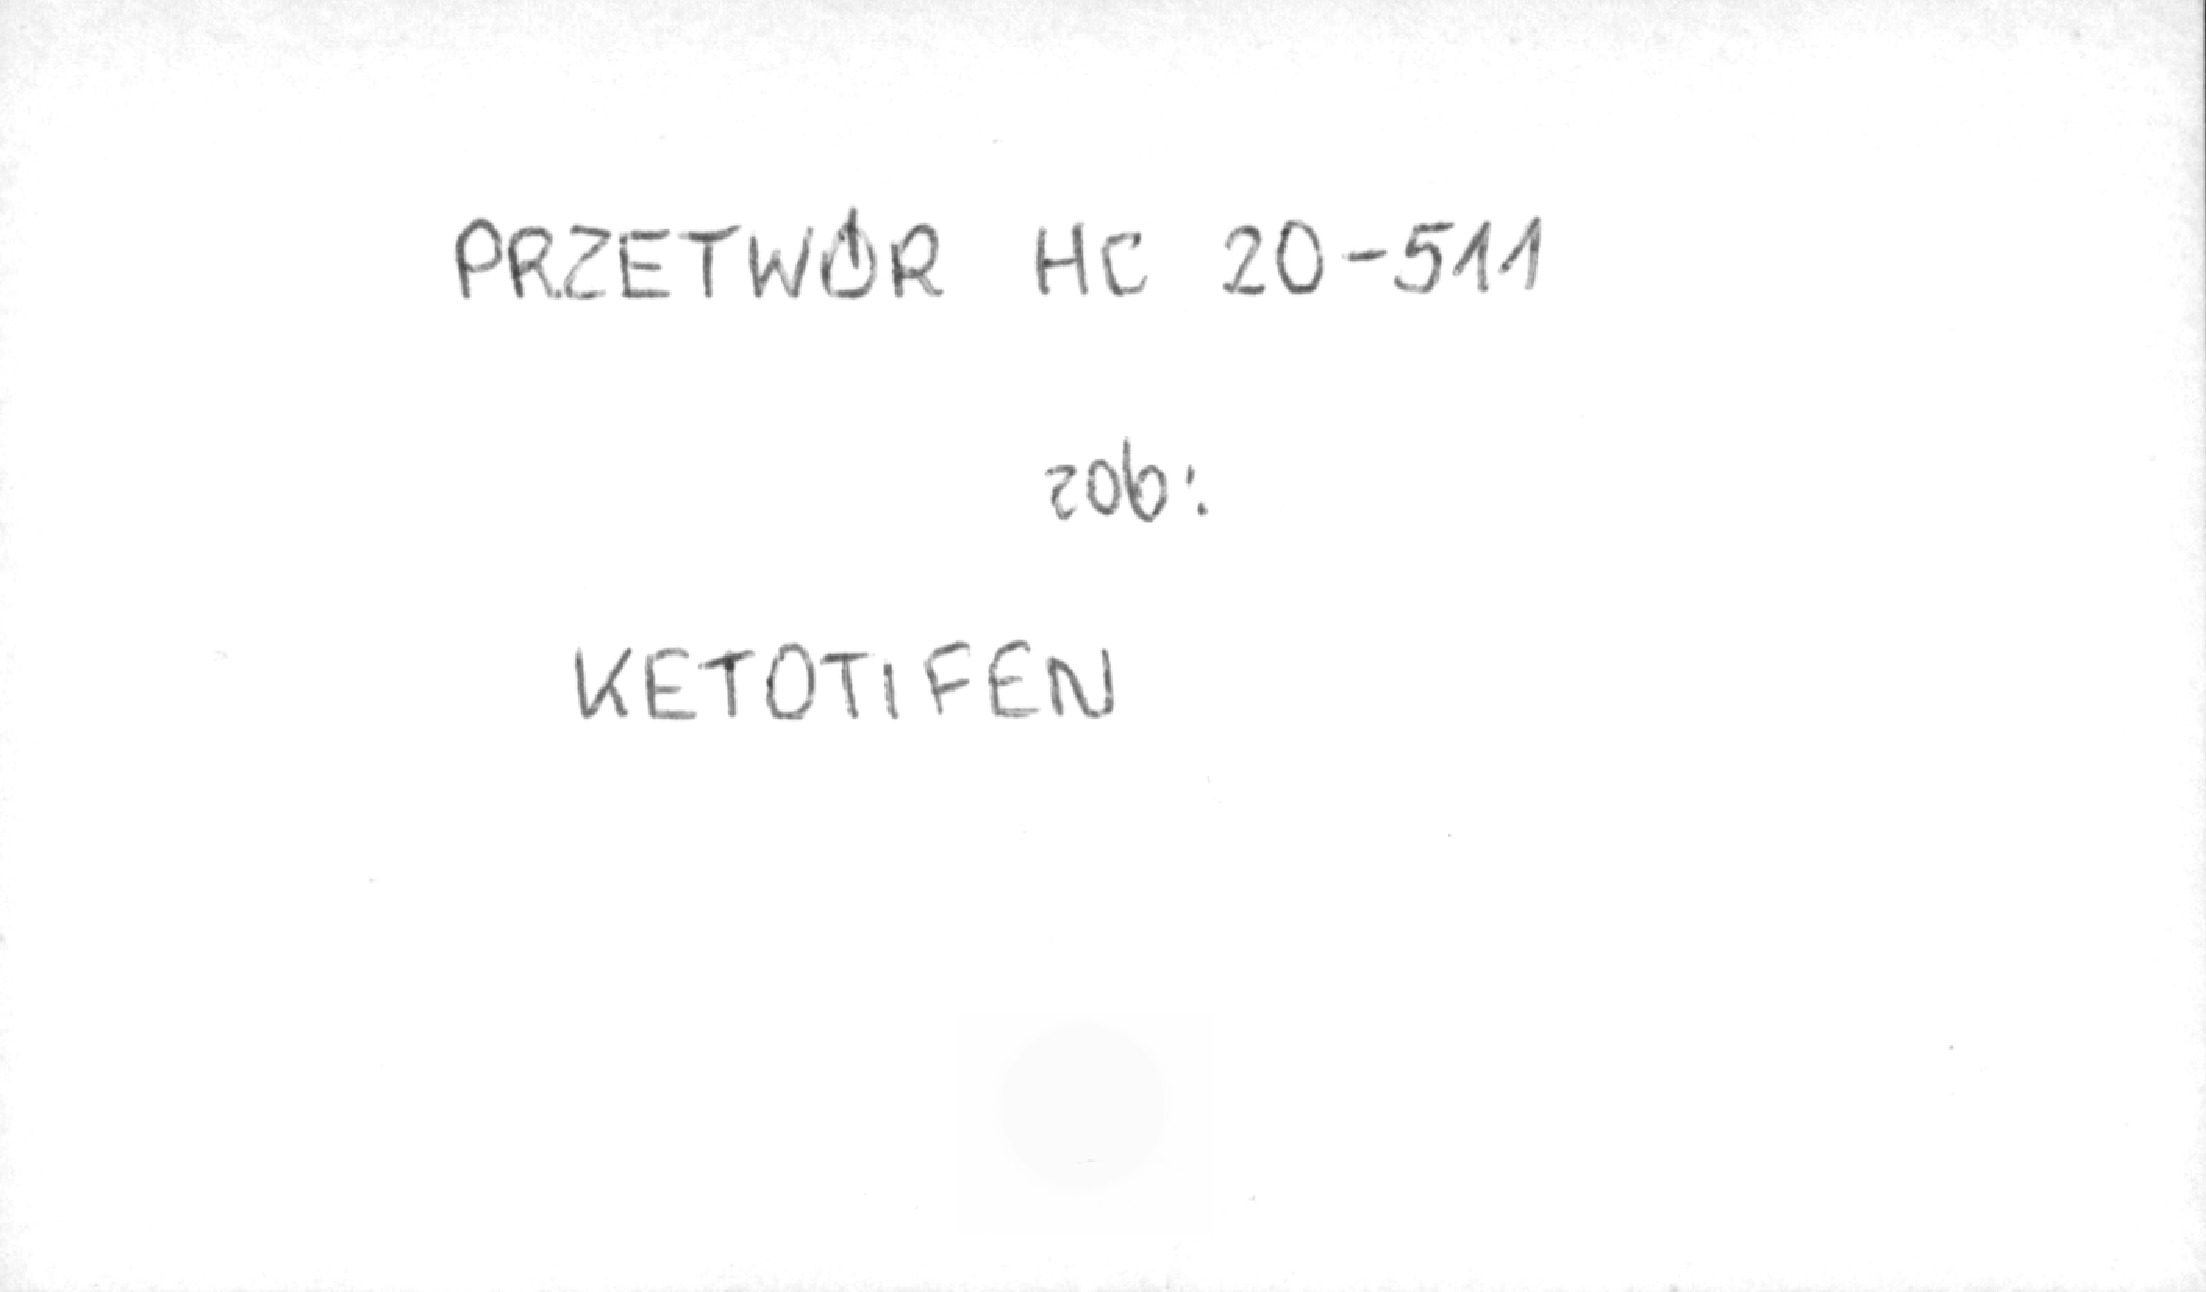 PRZETWÓR HC 20-511
zob:
KETOTIFEN